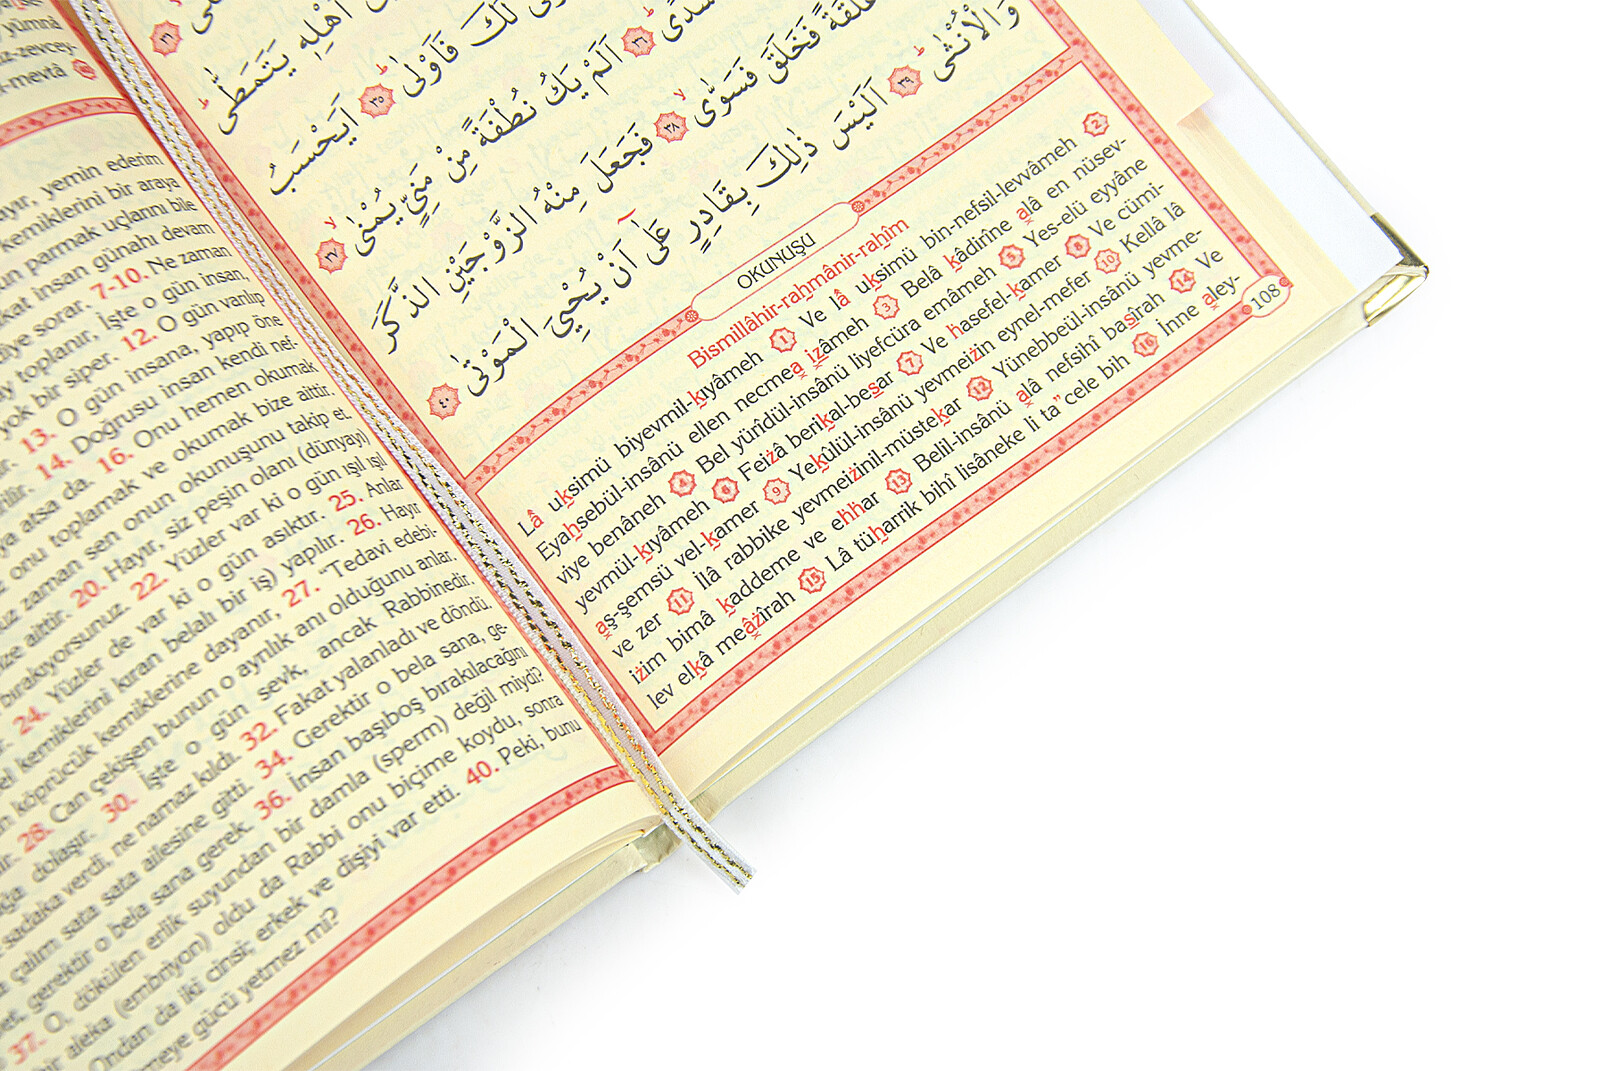 yümnâ
iz-zevcey-
l-mevtâ
ayır, yemin ederim
kemiklerini bir araya
un parmak uçlarını bile
kat insan günahı devam
diye sorar. 7-10. Ne zaman
ay toplanır, İşte o gün insan,
yok bir siper. 12. O gün varılıp
13. O gün insana, yapıp öne
rilir. 14. Doğrusu insan kendi nef-
ya atsa da. 16. Onu hemen okumak
z onu toplamak ve okumak bize aittir.
uz zaman sen onun okunuşunu takip et.
ize aittir. 20. Hayır, siz peşin olanı (dünyayı)
bırakıyorsunuz. 22. Yüzler var ki o gün ışıl ışıl
24. Yüzler de var ki o gün asıktır. 25. Anlar
el kemiklerini kıran belalı bir iş) yapılır. 26. Hayır
n köprücük kemiklerine dayanır, 27. "Tedavi edebi-
ir. 28. Can çekişen bunun o ayrılık anı olduğunu anlar.
ğa dolaşır. 30. İşte o gün sevk, ancak Rabbinedir.
sadaka verdi, ne namaz kıldı. 32. Fakat yalanladı ve döndü.
çalım sata sata ailesine gitti. 34. Gerektir o bela sana, ge-
gerektir o bela sana gerek. 36. İnsan başıboş bırakılacağını
37. O, dökülen erlik suyundan bir damla (sperm) değil miydi?
bir aleka (embriyon) oldu da Rabbi onu biçime koydu, sonra
Ondan da iki cinsi; erkek ve dişiyi var etti. 40. Peki, bunu
meye gücü yetmez mi?
اَهْلِهِ يَتَمَطّٰى
لَكَ فَاَوْلٰى ٣٥ اَيَحْسَبُ
سُدًى ٣٦ اَلَمْ يَكُ نُطْفَةً مِنْ مَنِيٍّ يُمْنٰى ٣٧
عَلَقَةً فَخَلَقَ فَسَوّٰى ٣٨ فَجَعَلَ مِنْهُ الزَّوْجَيْنِ الذَّكَرَ
وَالْاُنْثٰى ٣٩ اَلَيْسَ ذٰلِكَ بِقَادِرٍ عَلٰٓى اَنْ يُحْيِيَ الْمَوْتٰى ٤٠
OKUNUŞU
Bismillâhir-rahmânir-rahîm
Lâ uksimü biyevmil-kıyâmeh 1 Ve lâ uksimü bin-nefsil-levvâmeh 2
Eyahsebül-insânü ellen necmea izâmeh 3 Belâ kâdirîne alâ en nüsev-
viye benâneh 4 Bel yürîdül-insânü liyefcüra emâmeh 5 Yes-elü eyyâne
yevmül-kıyâmeh 6 Feizâ berikal-besar 7 Ve hasefel-kamer 8 Ve cümi-
aş-şemsü vel-kamer 9 Yekûlül-insânü yevmeizin eynel-mefer 10 Kellâ lâ
ve zer 11 İlâ rabbike yevmeizinil-müstekar 12 Yünebbeül-insânü yevme-
izim bimâ kaddeme ve ehhar 13 Belil-insânü alâ nefsihî basîrah 14 Ve
lev elkâ meâzîrah 15 Lâ tüharrik bihî lisâneke li ta"cele bih 16 İnne aley-
108